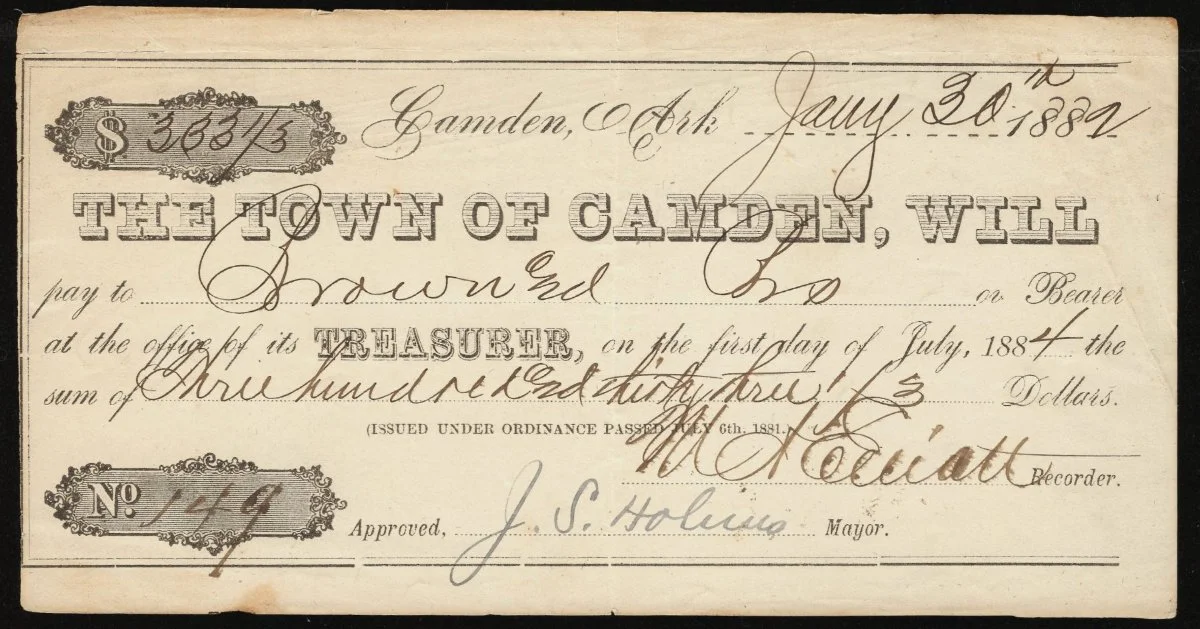 $ 333 1/3
Camden, Ark Jany 30th 1882
THE TOWN OF CAMDEN, WILL
pay to Brown and Bro or Bearer
at the office of its TREASURER, on the first day of July, 1884 the
sum of Three hundred and thirty three 1/3 Dollars.
(ISSUED UNDER ORDINANCE PASSED JULY 6th, 1881.)
Recorder.
No. 149
Approved, J. S. Holmes Mayor.